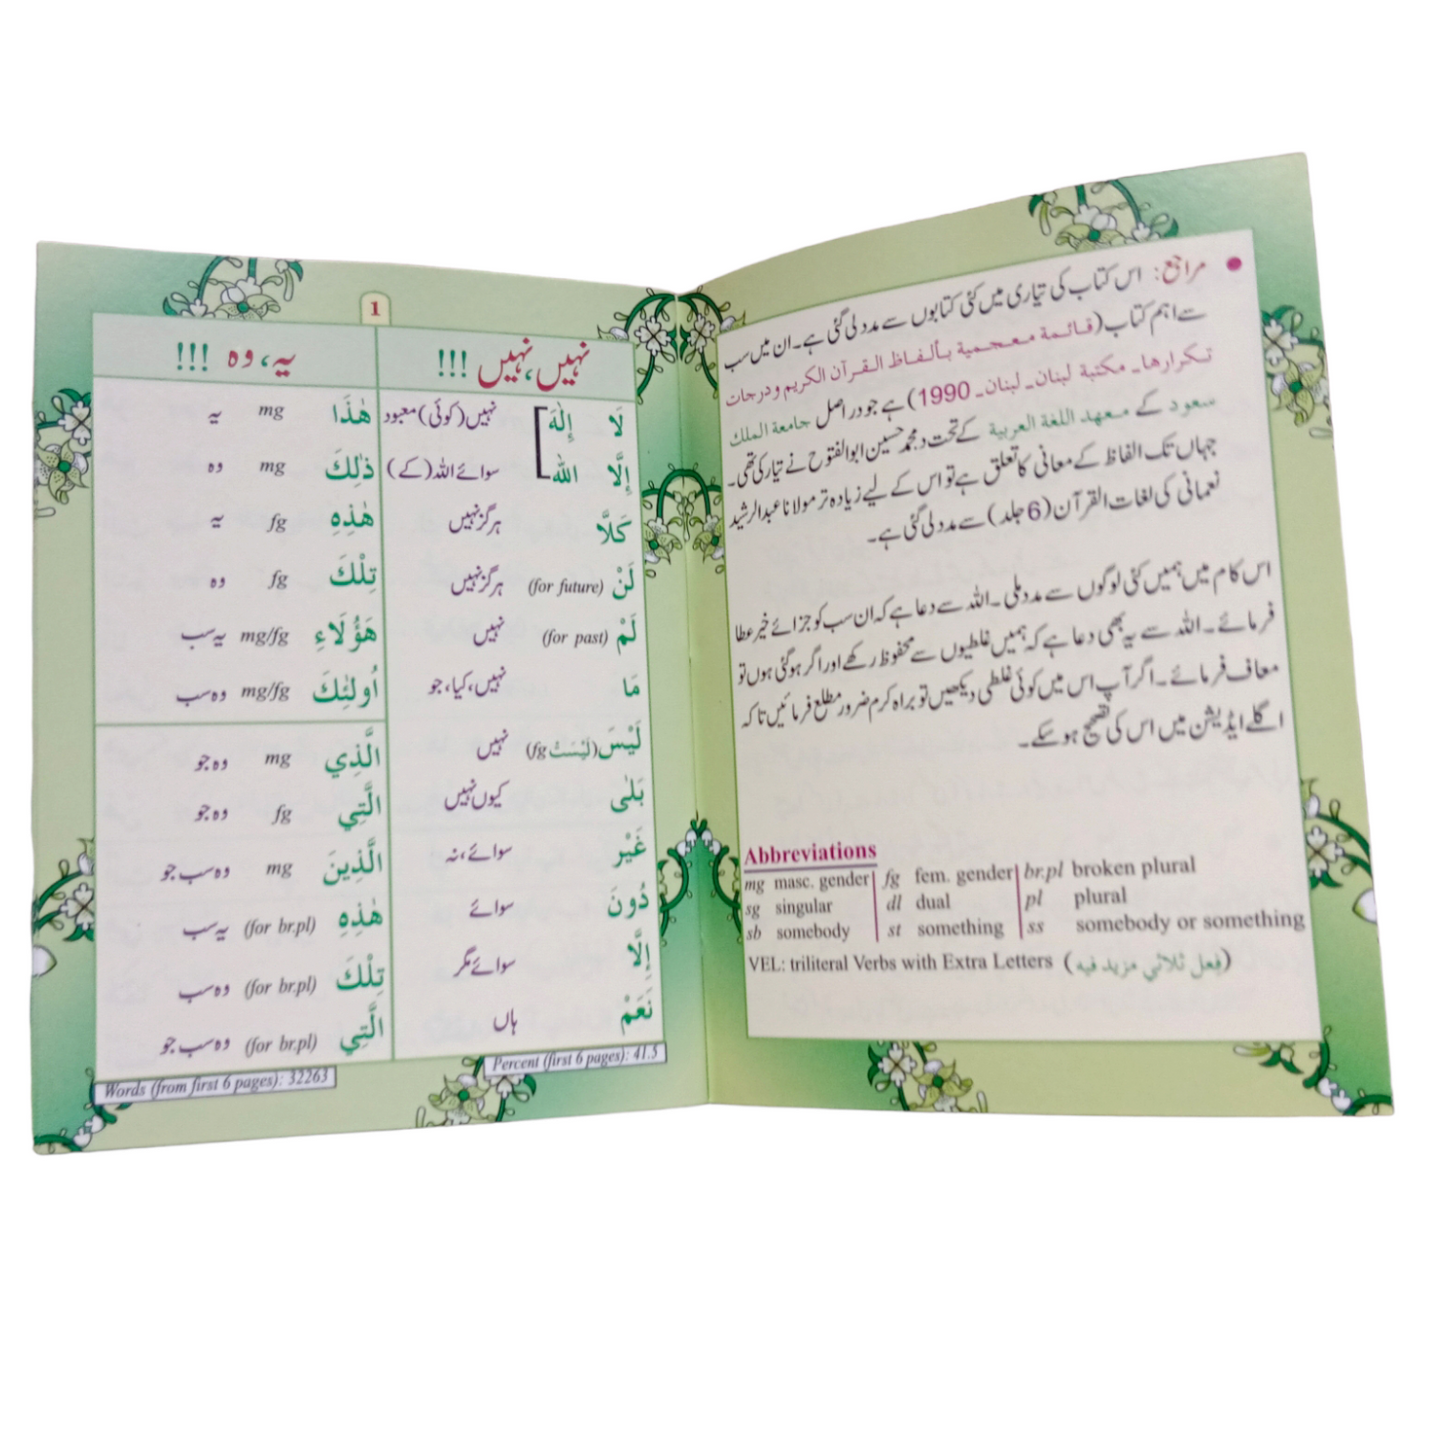 ● مراجع: اس کتاب کی تیاری میں کئی کتابوں سے مدد لی گئی ہے۔ ان میں سب
سے اہم کتاب (قائمة معجمية بألفاظ القرآن الكريم و درجات
تكرارها۔ مكتبة لبنان۔ لبنان۔ 1990) ہے جو دراصل جامعة الملك
سعود کے معهد اللغة العربية کے تحت د۔ محمد حسین ابوالفتوح نے تیار کی تھی۔
جہاں تک الفاظ کے معانی کا تعلق ہے تو اس کے لیے زیادہ تر مولانا عبدالرشید
نعمانی کی لغات القرآن (6 جلد) سے مدد لی گئی ہے۔
اس کام میں ہمیں کئی لوگوں سے مدد ملی۔ اللہ سے دعا ہے کہ ان سب کو جزائے خیر عطا
فرمائے۔ اللہ سے یہ بھی دعا ہے کہ ہمیں غلطیوں سے محفوظ رکھے اور اگر ہو گئی ہوں تو
معاف فرمائے۔ اگر آپ اس میں کوئی غلطی دیکھیں تو براہ کرم ضرور مطلع فرمائیں تاکہ
اگلے ایڈیشن میں اس کی تصحیح ہو سکے۔
Abbreviations
mg masc. gender fg fem. gender br.pl broken plural
sg singular dl dual pl plural
sb somebody st something ss somebody or something
VEL: triliteral Verbs with Extra Letters (فعل ثلاثي مزيد فيه)
1
نہیں، نہیں !!!
لَا إِلٰهَ نہیں (کوئی) معبود
إِلَّا اللّٰه سوائے اللہ (کے)
كَلَّا ہرگز نہیں
لَنْ (for future) ہرگز نہیں
لَمْ (for past) نہیں
مَا نہیں، کیا، جو
لَيْسَ (لَيْسَتْ fg) نہیں
بَلٰى کیوں نہیں
غَيْر سوائے، نہ
دُونَ سوائے
إِلَّا سوائے مگر
نَعَمْ ہاں
Percent (first 6 pages): 41.5
یہ، وہ !!!
هٰذَا mg یہ
ذٰلِكَ mg وہ
هٰذِهِ fg یہ
تِلْكَ fg وہ
هَؤُلَاءِ mg/fg یہ سب
أُولٰئِكَ mg/fg وہ سب
الَّذِي mg وہ جو
الَّتِي fg وہ جو
الَّذِينَ mg وہ سب جو
هٰذِهِ (for br.pl) یہ سب
تِلْكَ (for br.pl) وہ سب
الَّتِي (for br.pl) وہ سب جو
Words (from first 6 pages): 32263